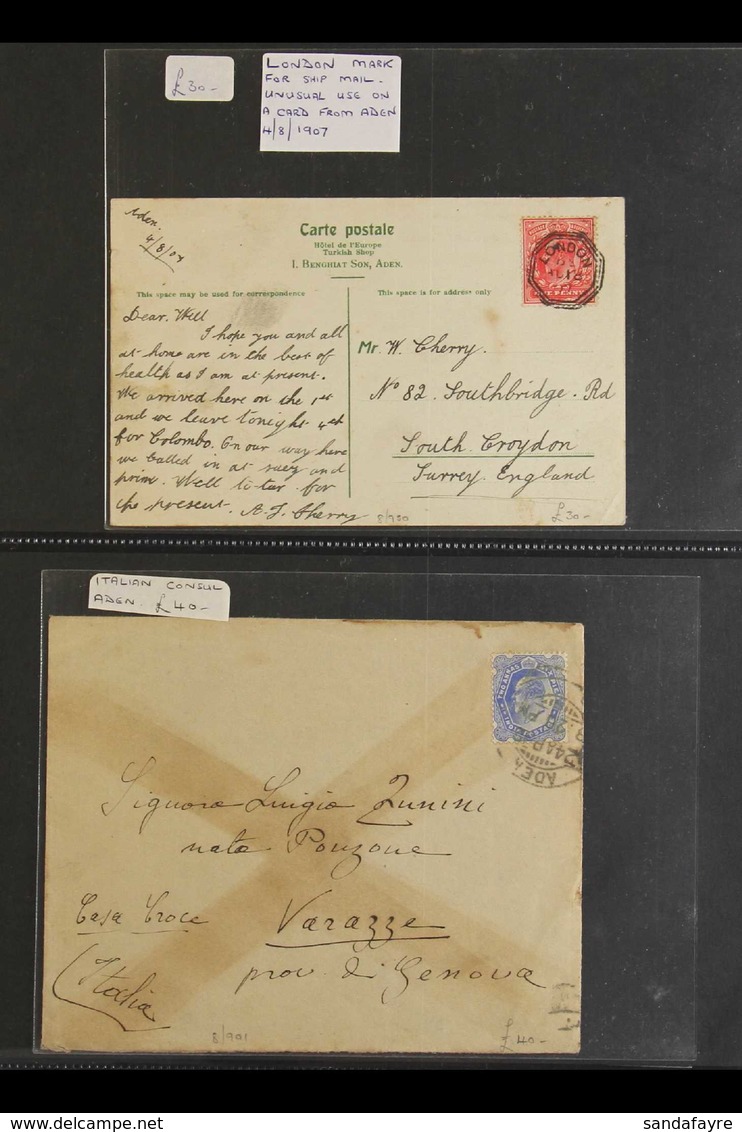 £30-
LONDON MARK
FOR SHIP MAIL.
UNUSUAL USE ON
A CARD FROM ADEN
4/8/1907
Aden.
4/8/07
Carte postale
Hôtel de l'Europe
Turkish Shop
I. BENGHIAT SON, ADEN.
LONDON
ONE PENNY
This space may be used for correspondence
This space is for address only
Dear. Will
I hope you and all
at home are in the best of
health as I am at present.
We arrived here on the 1st
and we leave tonight 4th
for Colombo. On our way here
we called in at suez and
prim. Well ta-tar for
the present. A.J. Cherry
Mr. W. Cherry.
No 82. Southbridge. Rd
South Croydon
Surrey. England
8/900
£30-
ITALIAN CONSUL
ADEN. £40-
TWO ANNAS
INDIA POSTAGE
ADEN
24 AP
Signora Luigia Zunini
nata Ponzone
Casa Croce
Varazze
prov. di Genova
(Italia
8/901
£40-
sandafayre